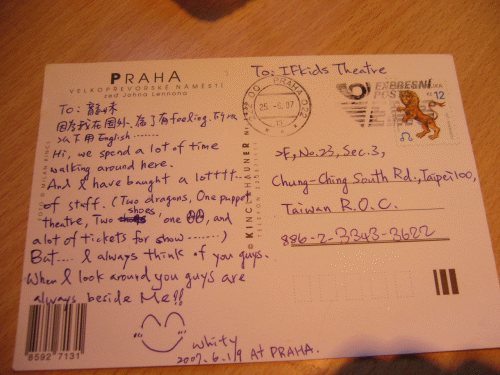 PRAHA
VELKOPŘEVORSKÉ NÁMĚSTÍ
zeď Johna Lennona
To:
因為我在國外,為了有feeling,所以
以下用English.......
Hi, we spend a lot of time
walking around here.
And I have baught a lottttt..
of staff. (Two dragons, One puppet
theatre, Two shoes 'one and
a lot of tickets for show.......)
But.... I always think of you guys.
When I look around you guys are
always beside Me!!
Whity
2007.6.19 AT PRAHA.
8592 7131
FOTO © MILAN KINCL
© KIRCHHAUNER
TELEFON
PRAHA 022
25.-6.07
To: IFkids Theatre
EXPRESNÍ
12
2F, No.23, Sec.3,
Chung-Ching South Rd., Taipei 100,
Taiwan R.O.C.
886-2-3343-3622